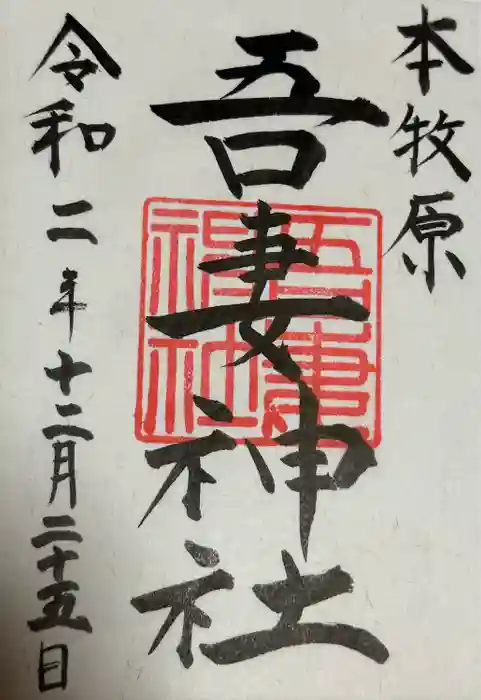 本牧原
吾妻神社
吾妻
神社
令和二年十二月二十五日